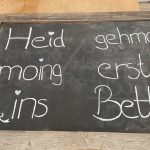 Heid gehm
moing erst
& ins Bett